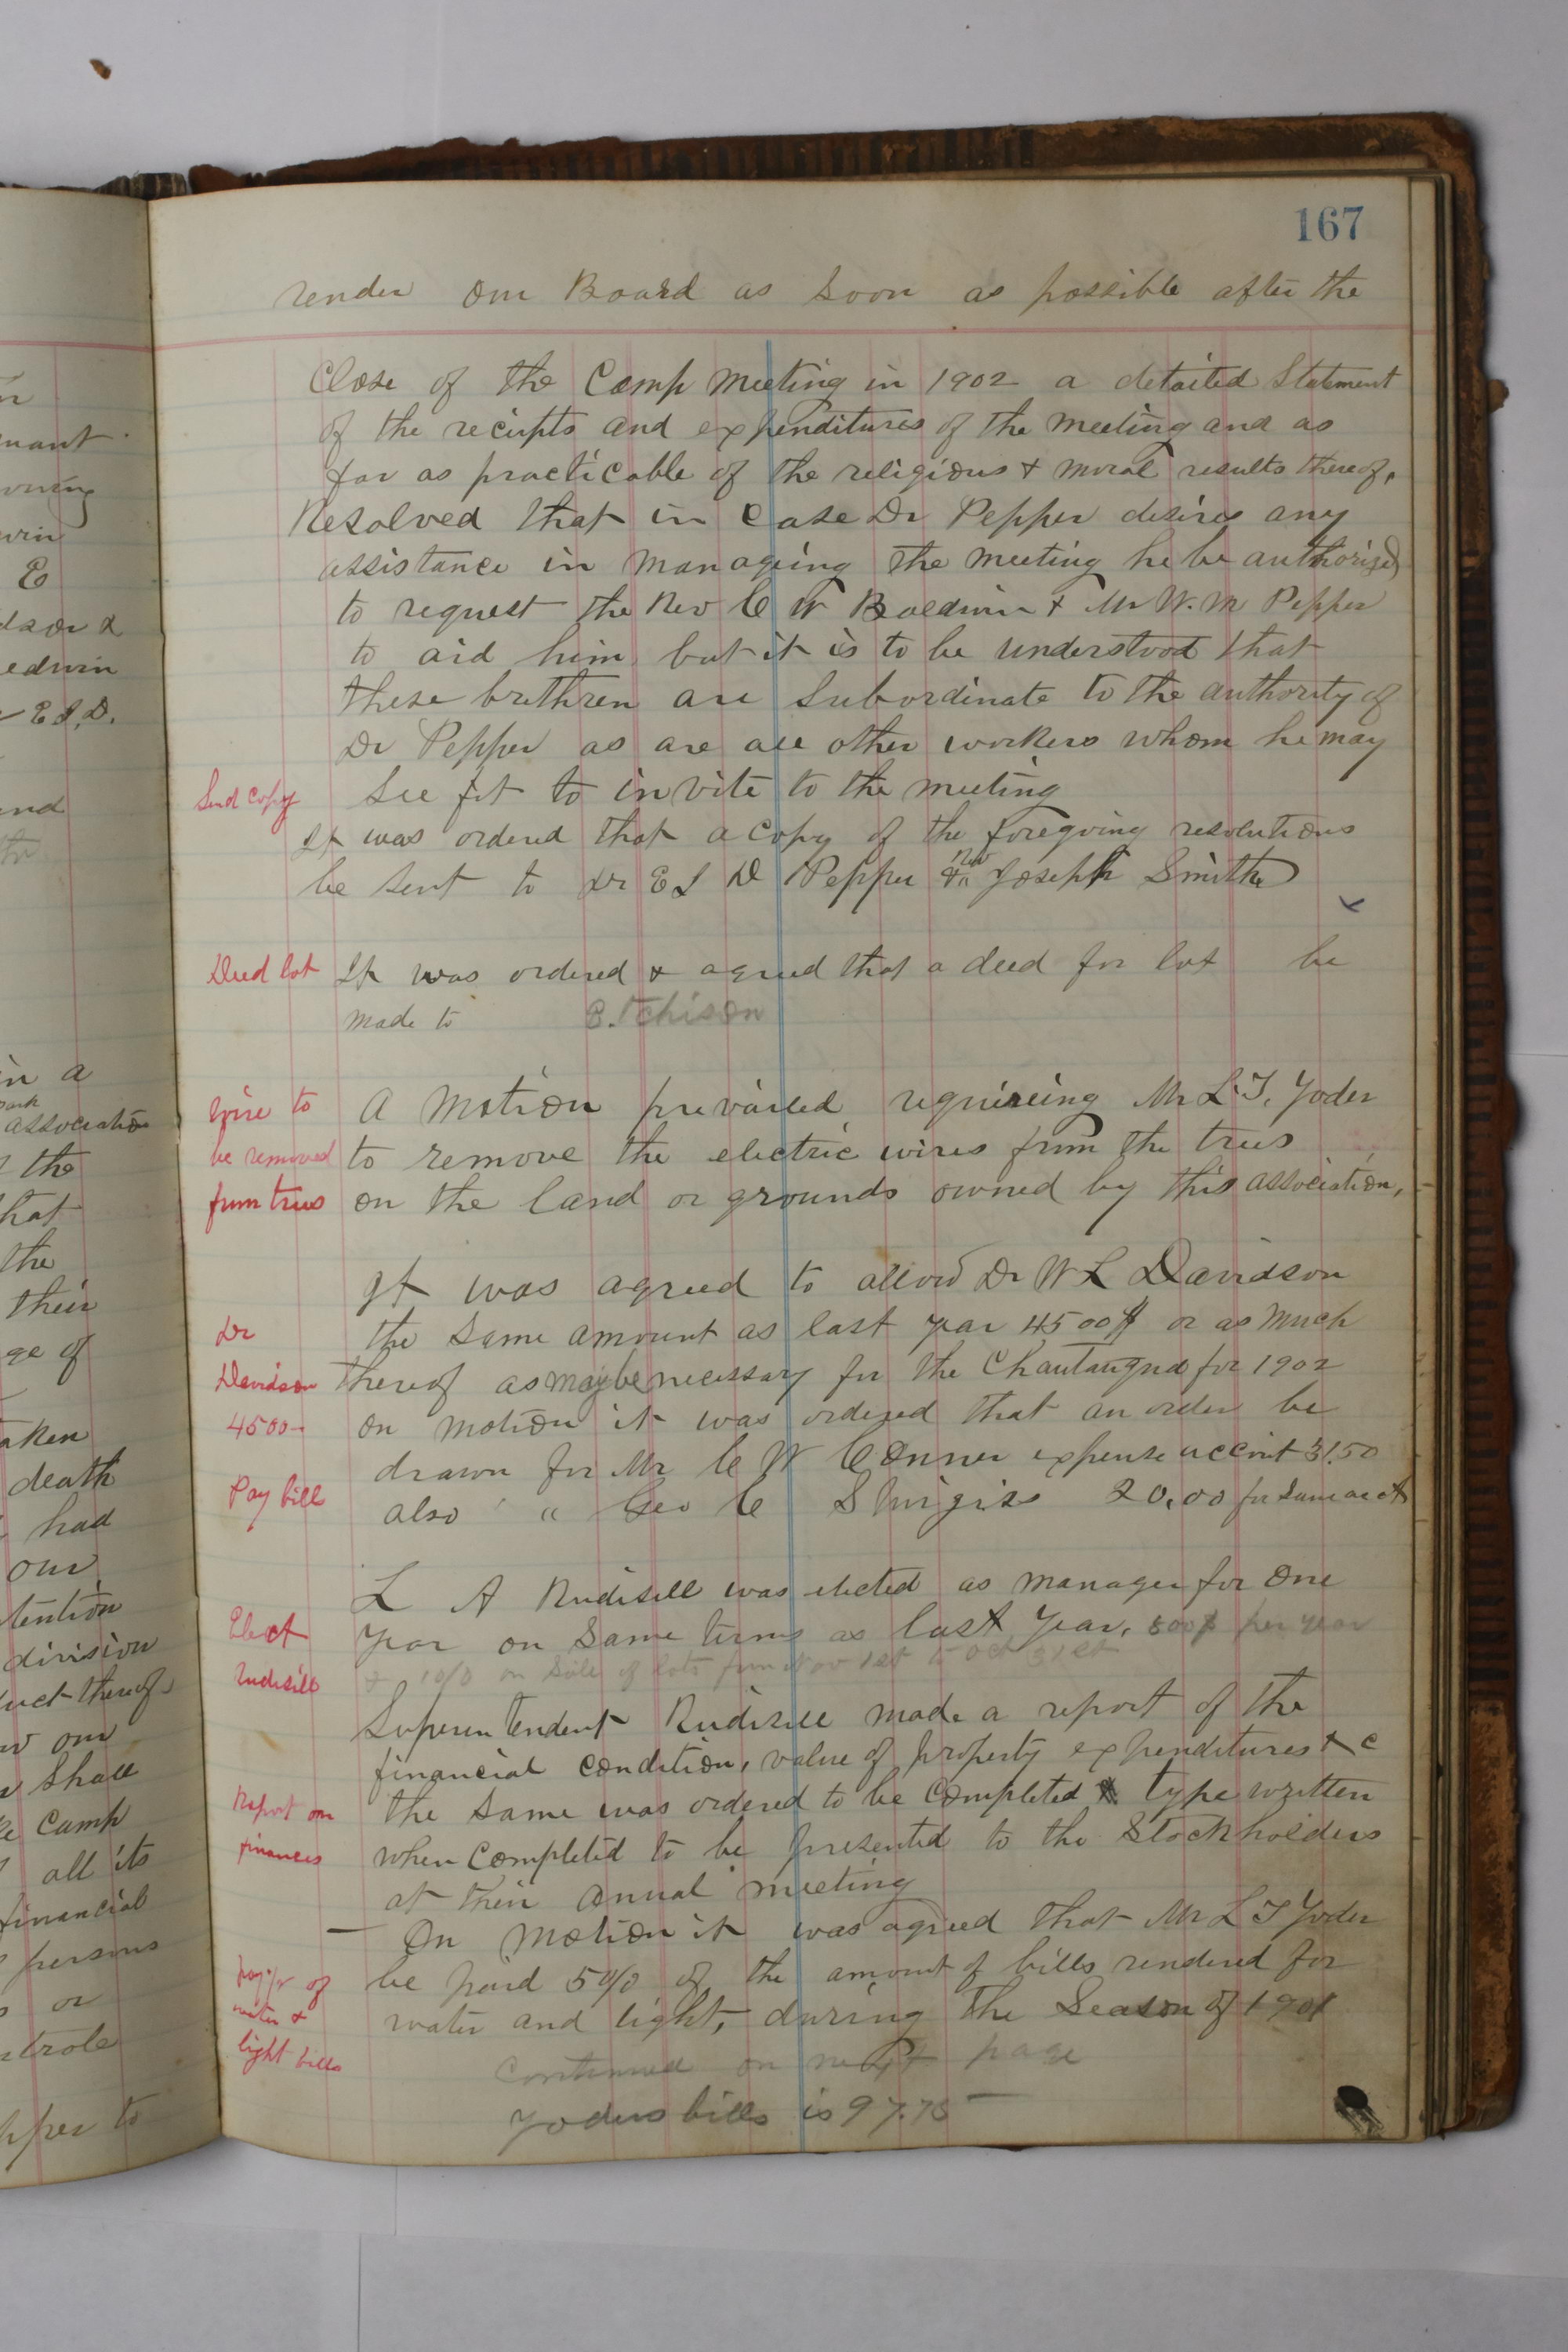 167
render our Board as soon as possible after the
Close of the Camp Meeting in 1902 a detailed Statement
of the reciepts and expenditures of the meeting and as
far as practicable of the religious & moral results thereof.
Resolved that in case Dr Pepper desires any
assistance in managing the meeting he be authorized
to request the Rev C W Baldwin & Mr W. M Pepper
to aid him, but it is to be understood that
these brethren are subordinate to the authority of
Dr Pepper as are all other workers whom he may
Send Copy
see fit to invite to the meeting
It was ordered that a copy of the foregoing resolutions
be sent to Dr E I D Pepper & Rev Joseph Smith
x
Deed lot
It was ordered & agreed that a deed for lot be
made to Etchison
wire to
be removed
from trees
A Motion prevailed requireing Mr L. T. Yoder
to remove the electric wires from the trees
on the land or grounds owned by this association,
It was agreed to allow Dr W L Davidson
Dr
Davidson
4500-
the same amount as last year 4500$ or as much
thereof as may be necessary for the Chautauqua for 1902
on motion it was ordered that an order be
drawn for Mr C W Conner expense accont 31.50
Pay bill
also " Geo C Sturgiss 20.00 for same acct
L A Rudisill was elected as manager for one
Elect
Rudisill
year on same terms as last year, 800$ per year
& 10% on sale of lots from Nov 1st to Oct 31st
Superintendent Rudisill made a report of the
financial condition, value of property expenditures & c
Report on
finances
the same was ordered to be completed & type written
when completed to be presented to the Stockholders
at their annual meeting
On motion it was agreed that Mr L T Yoder
of
water &
light bills
be paid 5% of the amount of bills rendered for
water and light, during the Season of 1901
continued on next page
Yoders bills is 97.75